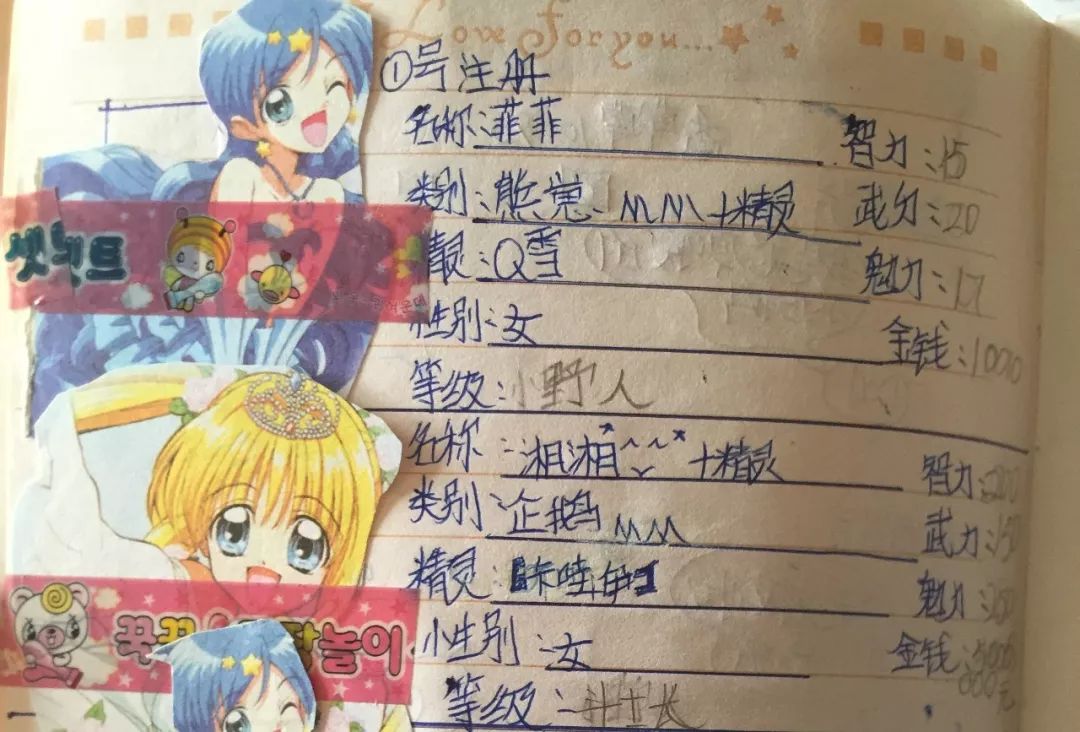 Love for you...
①号注册
名称:菲菲 智力:15
类别:熊党 MM+精灵 武力:20
精灵:Q雪 魅力:17
셋넷트
性别:女 金钱:1000
等级:小野人
名称:湘湘^^ +精灵 智力:200
类别:企鹅MM 武力:150
精灵:卡哇伊 魅力:350
놀이
性别:女 金钱:5000000元
等级:斗士长